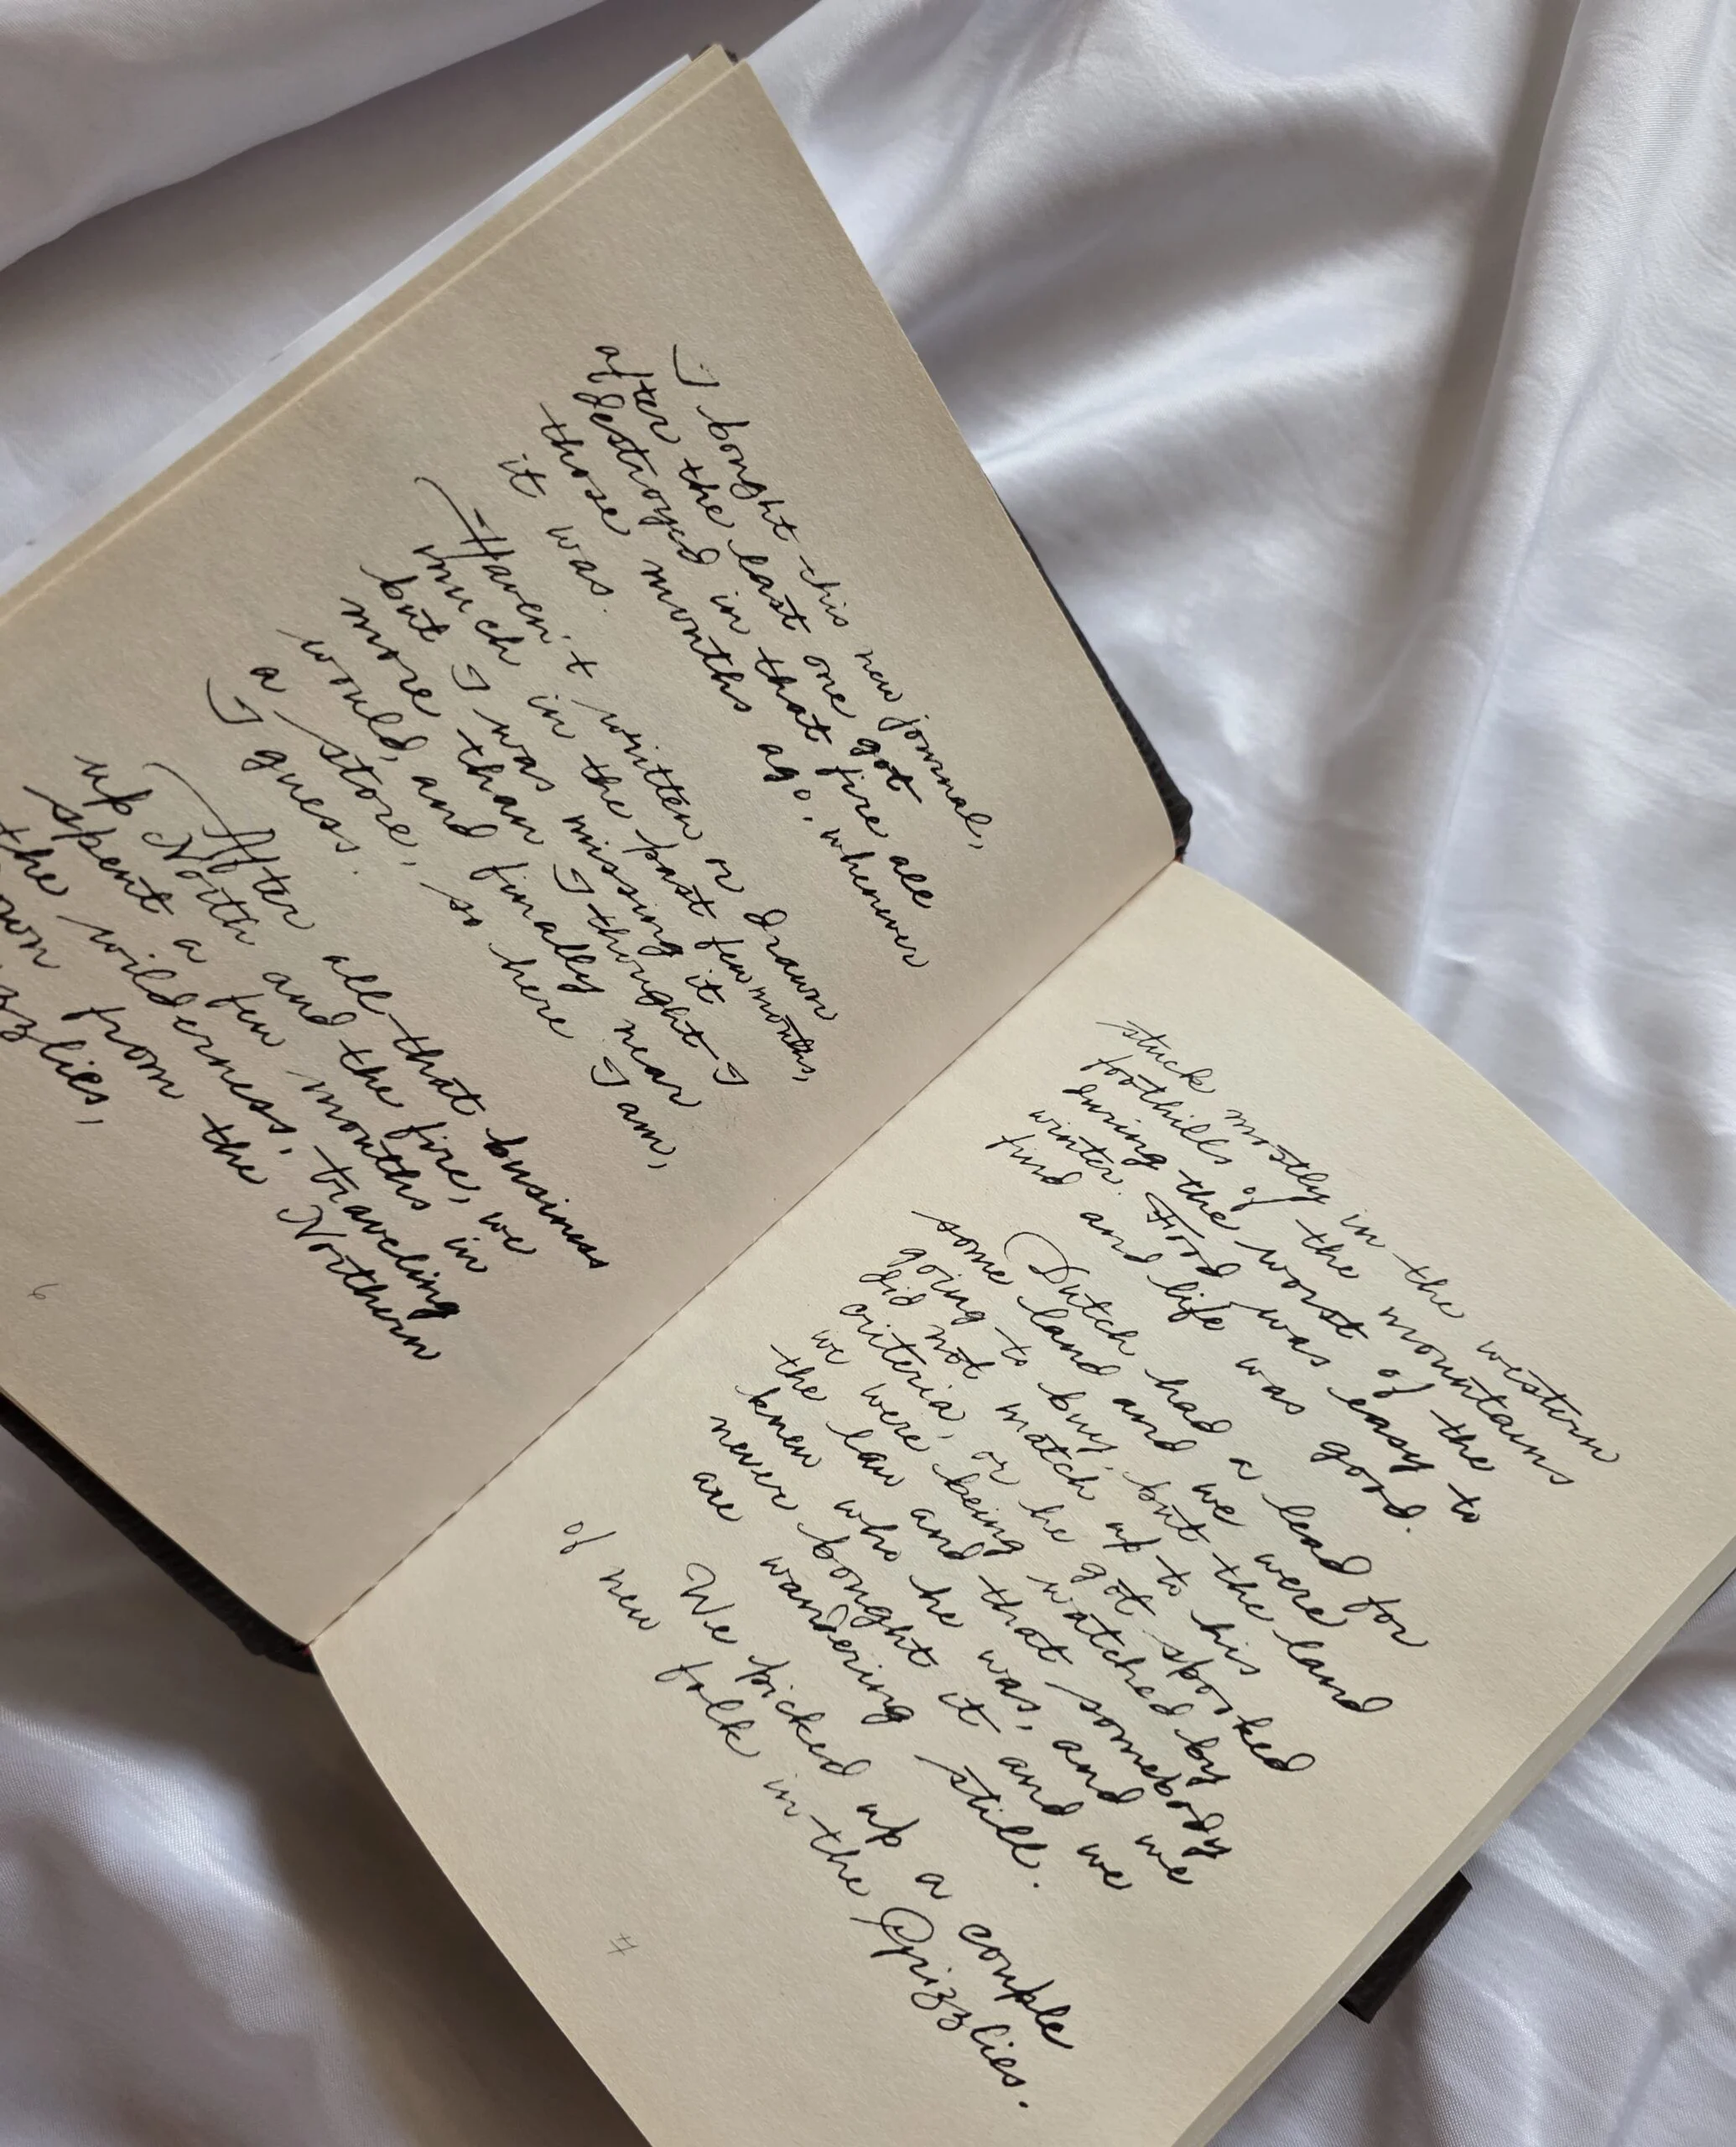 I bought this new journal,
after the last one got
destroyed in that fire all
those months ago, whenever
it was.
Haven't written or drawn
much in the past few months,
but I was missing it
more than I thought I
would, and finally near
a store, so here I am,
I guess.
After all that business
up North and the fire, we
spent a few months in
the wilderness, traveling
from the Northern
6
stuck mostly in the western
foothills of the mountains
during the worst of the
winter. Food was easy to
find and life was good.
Dutch had a lead for
some land and we were
going to buy, but the land
did not match up to his
criteria, or he got spooked
we were being watched by
the law and that somebody
knew who he was, and we
never bought it and we
are wandering still.
We picked up a couple
of new folk in the Grizzlies.
7